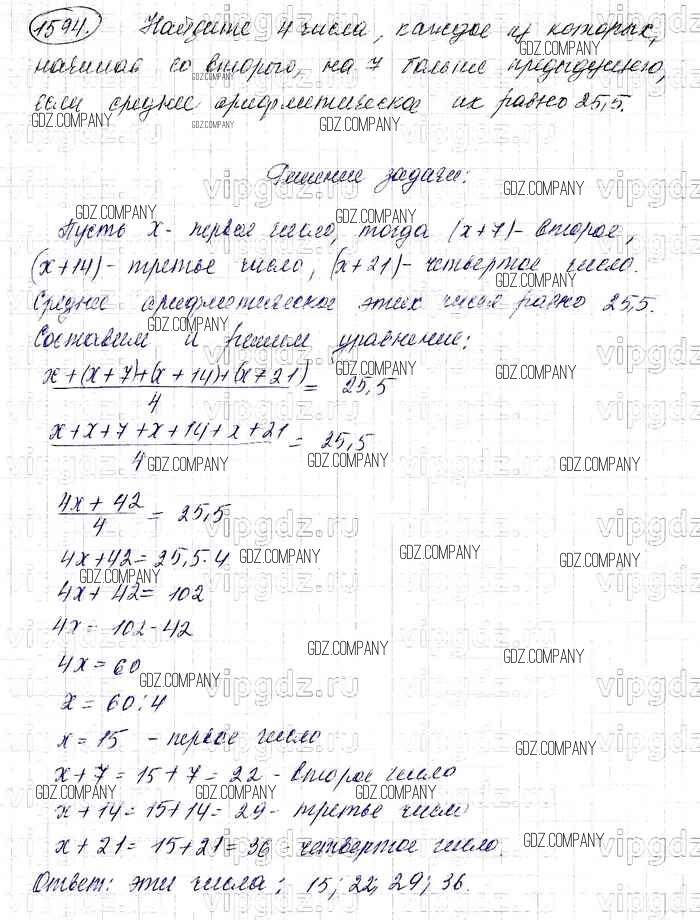 1594. Найдите 4 числа, каждое из которых,
начиная со второго, на 7 больше предыдущего,
если среднее арифметическое их равно 25,5.
Решение задачи:
Пусть х - первое число, тогда (х+7) - второе,
(х+14) - третье число, (х+21) - четвертое число.
Среднее арифметическое этих чисел равно 25,5.
Составим и решим уравнение:
х+(х+7)+(х+14)+(х+21)
4
= 25,5
х+х+7+х+14+х+21
4
= 25,5
4х+42
4
= 25,5
4х+42=25,5·4
4х+42=102
4х=102-42
4х=60
х=60:4
х=15 - первое число
х+7=15+7=22 - второе число
х+14=15+14=29 - третье число
х+21=15+21=36 - четвертое число.
Ответ: эти числа: 15; 22; 29; 36.
GDZ.COMPANY
vipgdz.ru